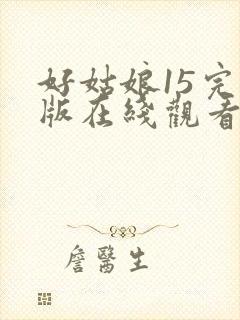 好姑娘15完
版在綫觀看
詹醫生